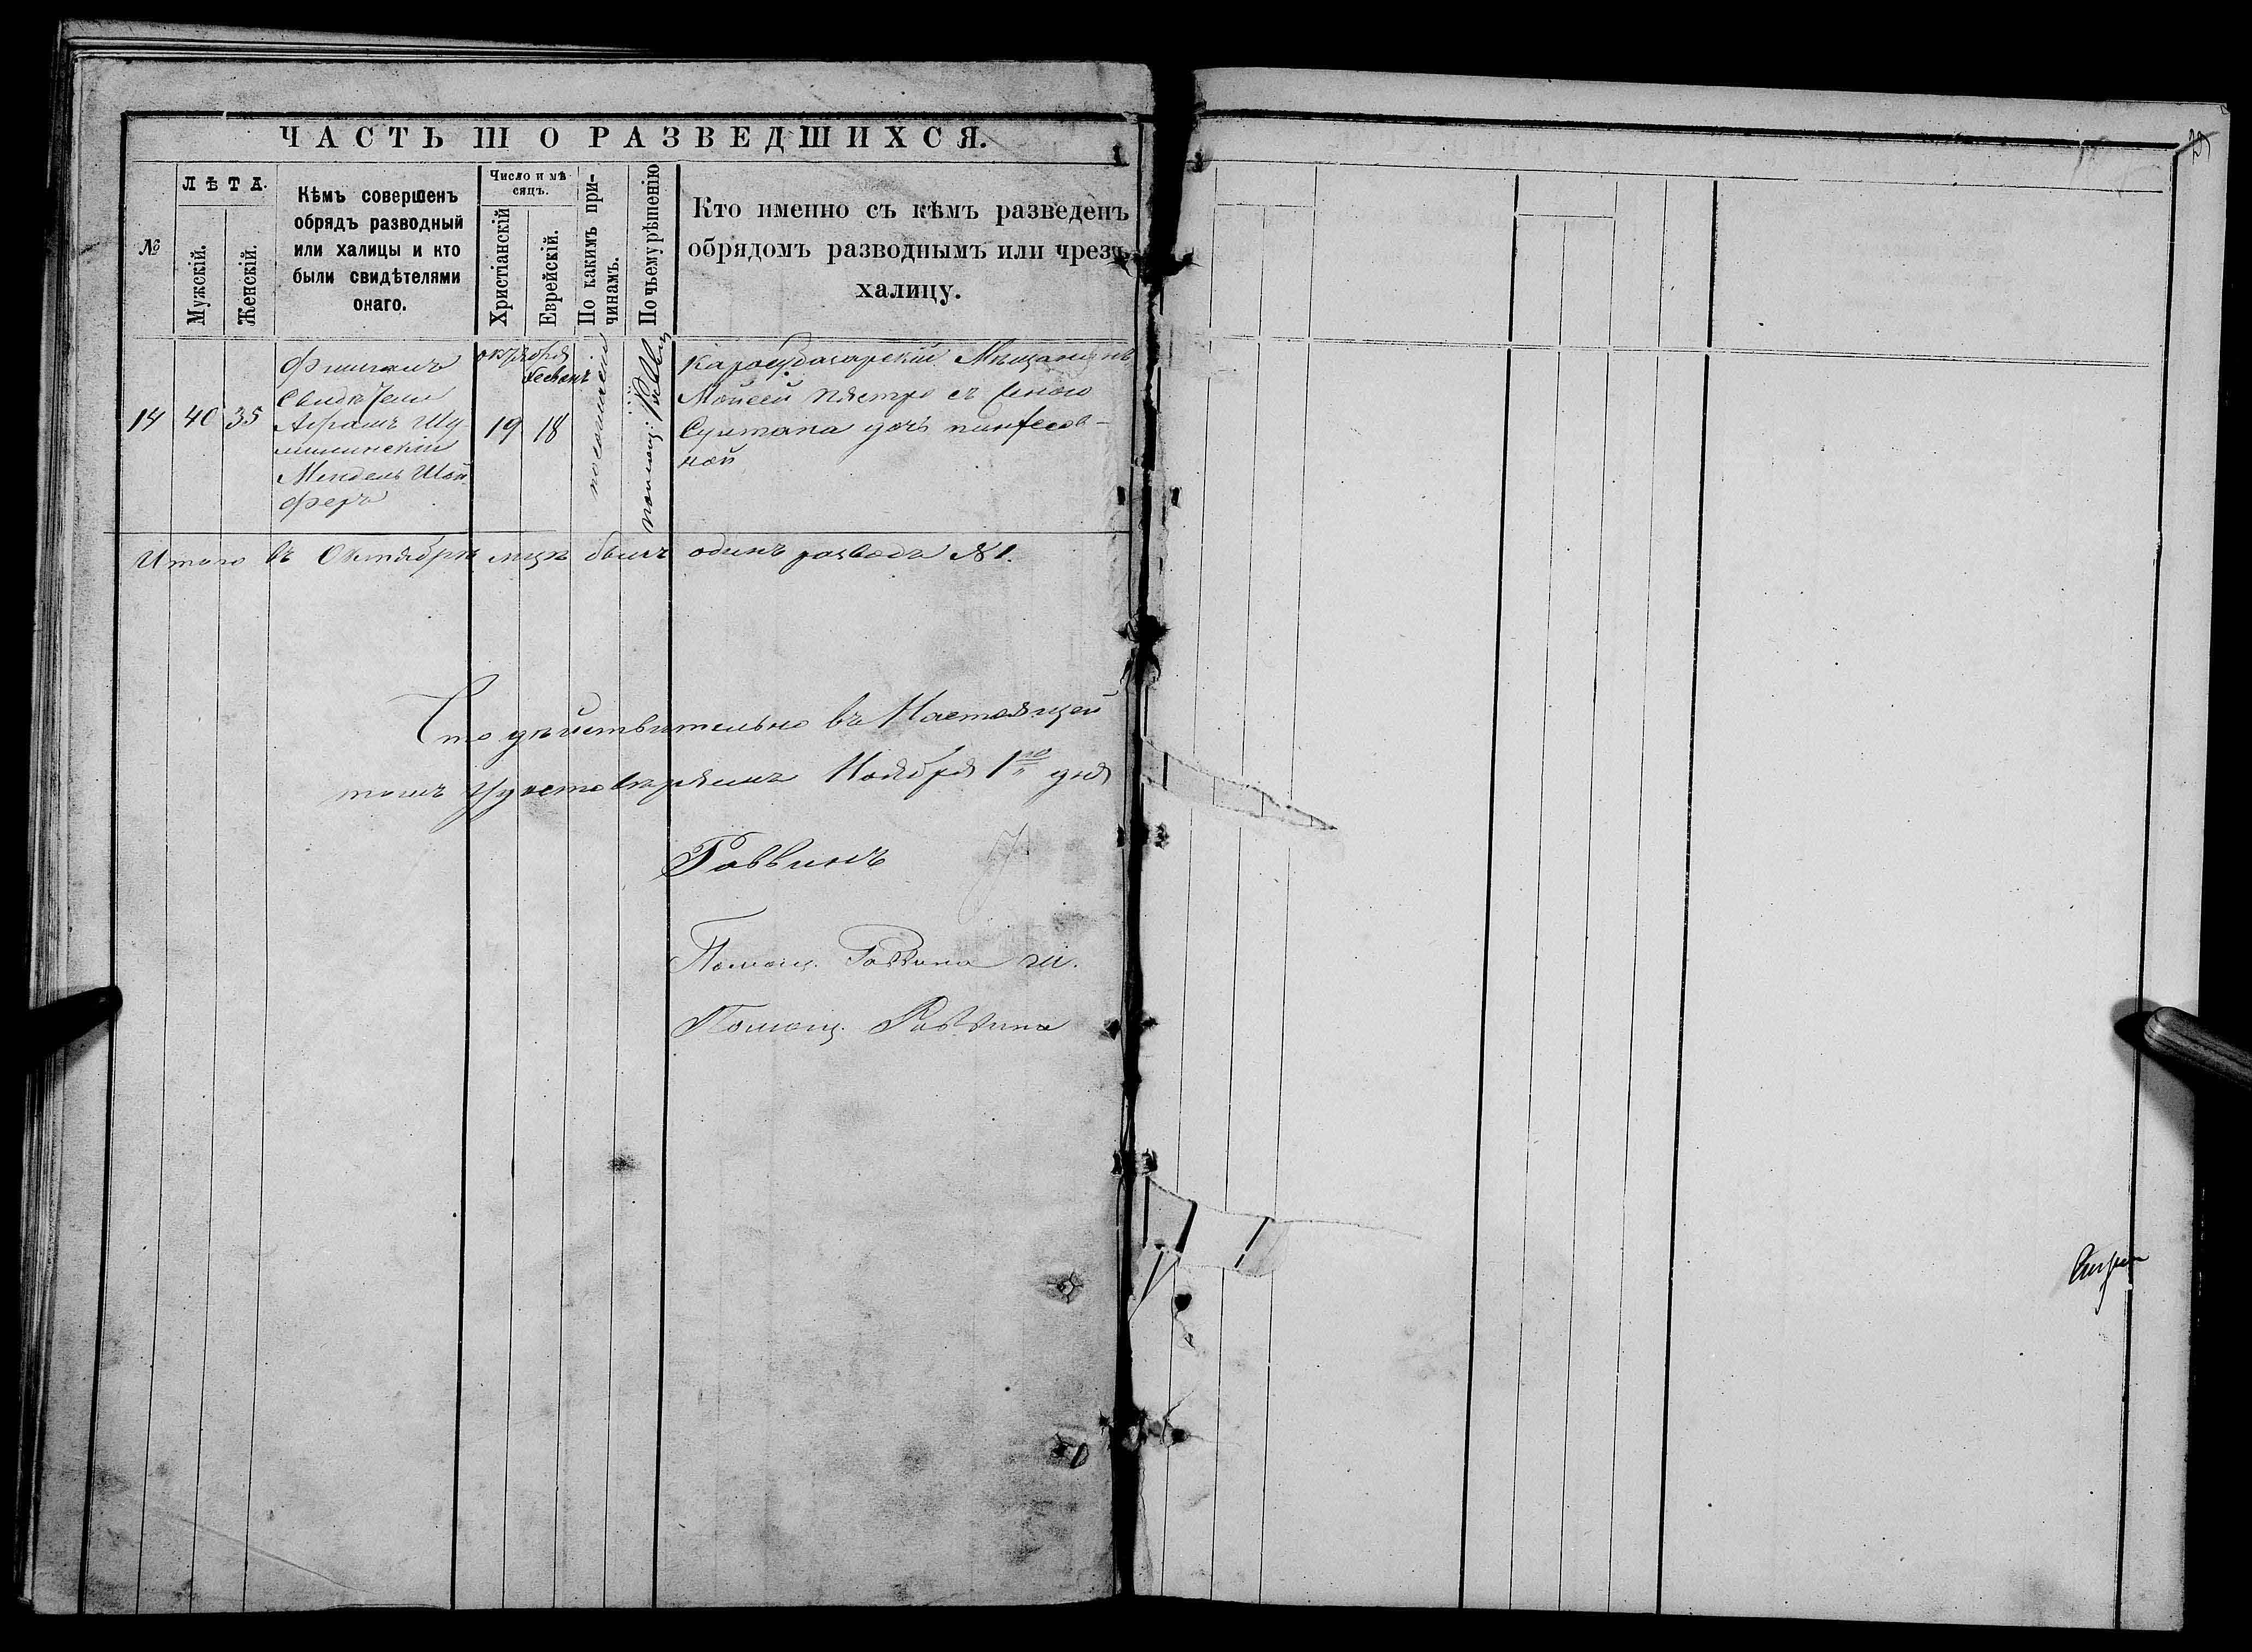 ЧАСТЬ III О РАЗВЕДШИХСЯ.
№
ЛѢТА.
Мужскій.
Женскій.
Кѣмъ совершенъ
обрядъ разводный
или халицы и кто
были свидѣтелями
онаго.
Число и мѣ-
сяцъ.
Христіанскій
Еврейскій.
По какимъ при-
чинамъ.
По чьему рѣшенію
Кто именно съ кѣмъ разведенъ
обрядомъ разводнымъ или чрезъ
халицу.
14
40
35
Фишманъ
Свидѣтели
Абрамъ Шу
Мендель Шай
феръ
октября
хесванъ
19
18
по согласію
помощ: Рав
карасубазарскій Мѣщанинъ
Мойсей Пястро съ женою
Султана дочь пинхесов-
ной
Итого въ Октябрѣ мцѣ былъ одинъ разводъ №1.
Что дѣйствительно въ Настоящей
томъ удостовѣряемъ Ноября 1го дня
Раввинъ
Помощ. Раввина
Помощ. Раввина